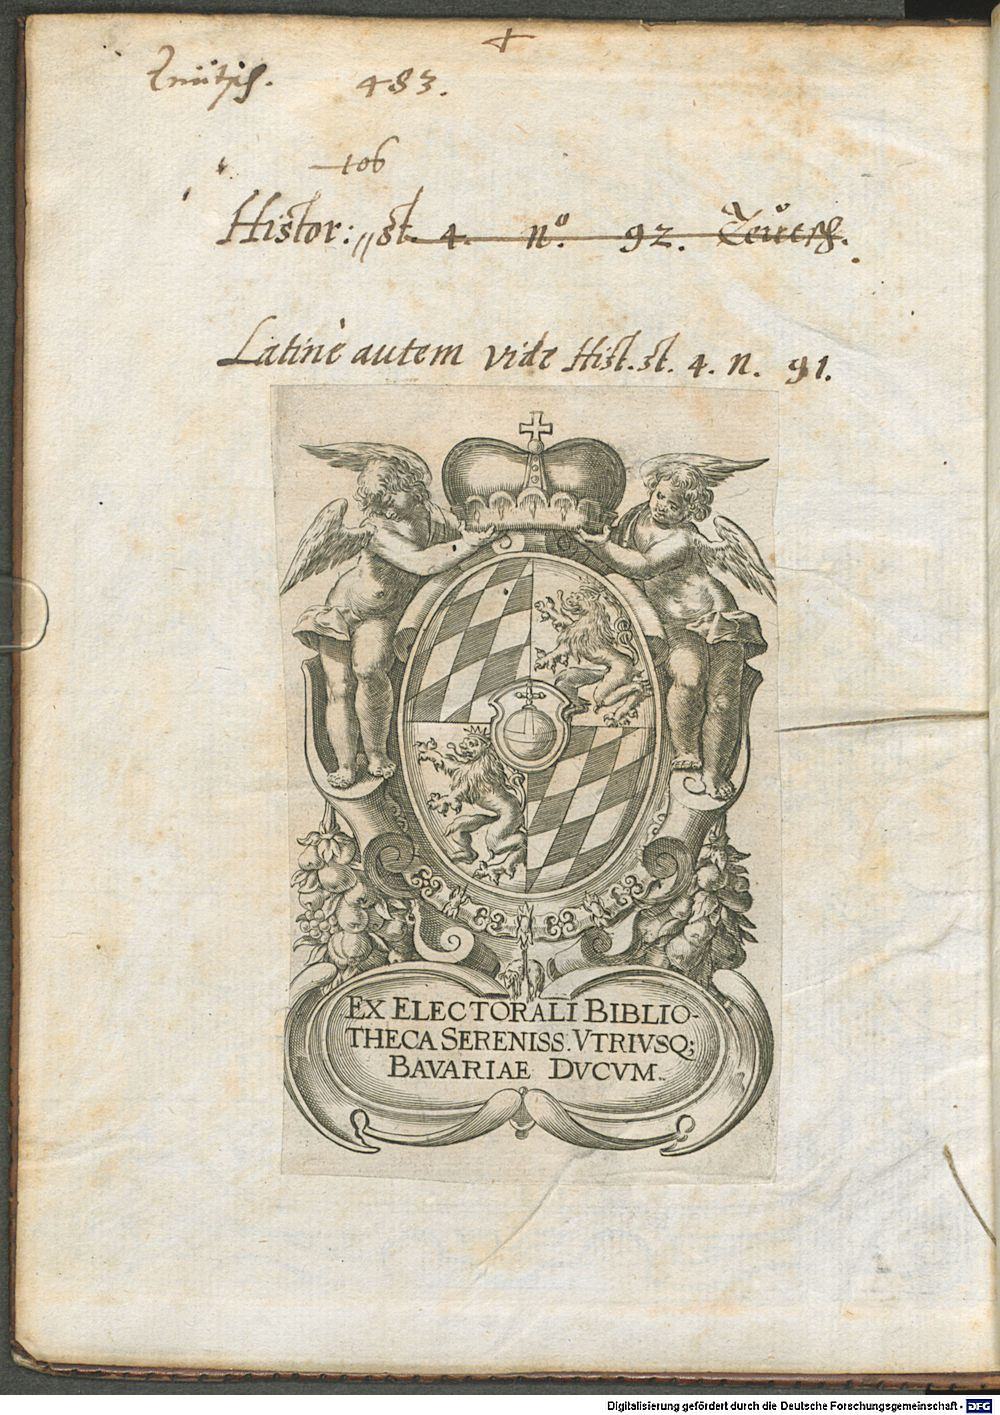 483.
106
Histor: st. 4. nº. 92. Teütsch.
Latinè autem vide Hist. st. 4. n. 91.
EX ELECTORALI BIBLIO-
THECA SERENISS. VTRIVSQ;
BAVARIAE DVCVM.
Digitalisierung gefördert durch die Deutsche Forschungsgemeinschaft - DFG